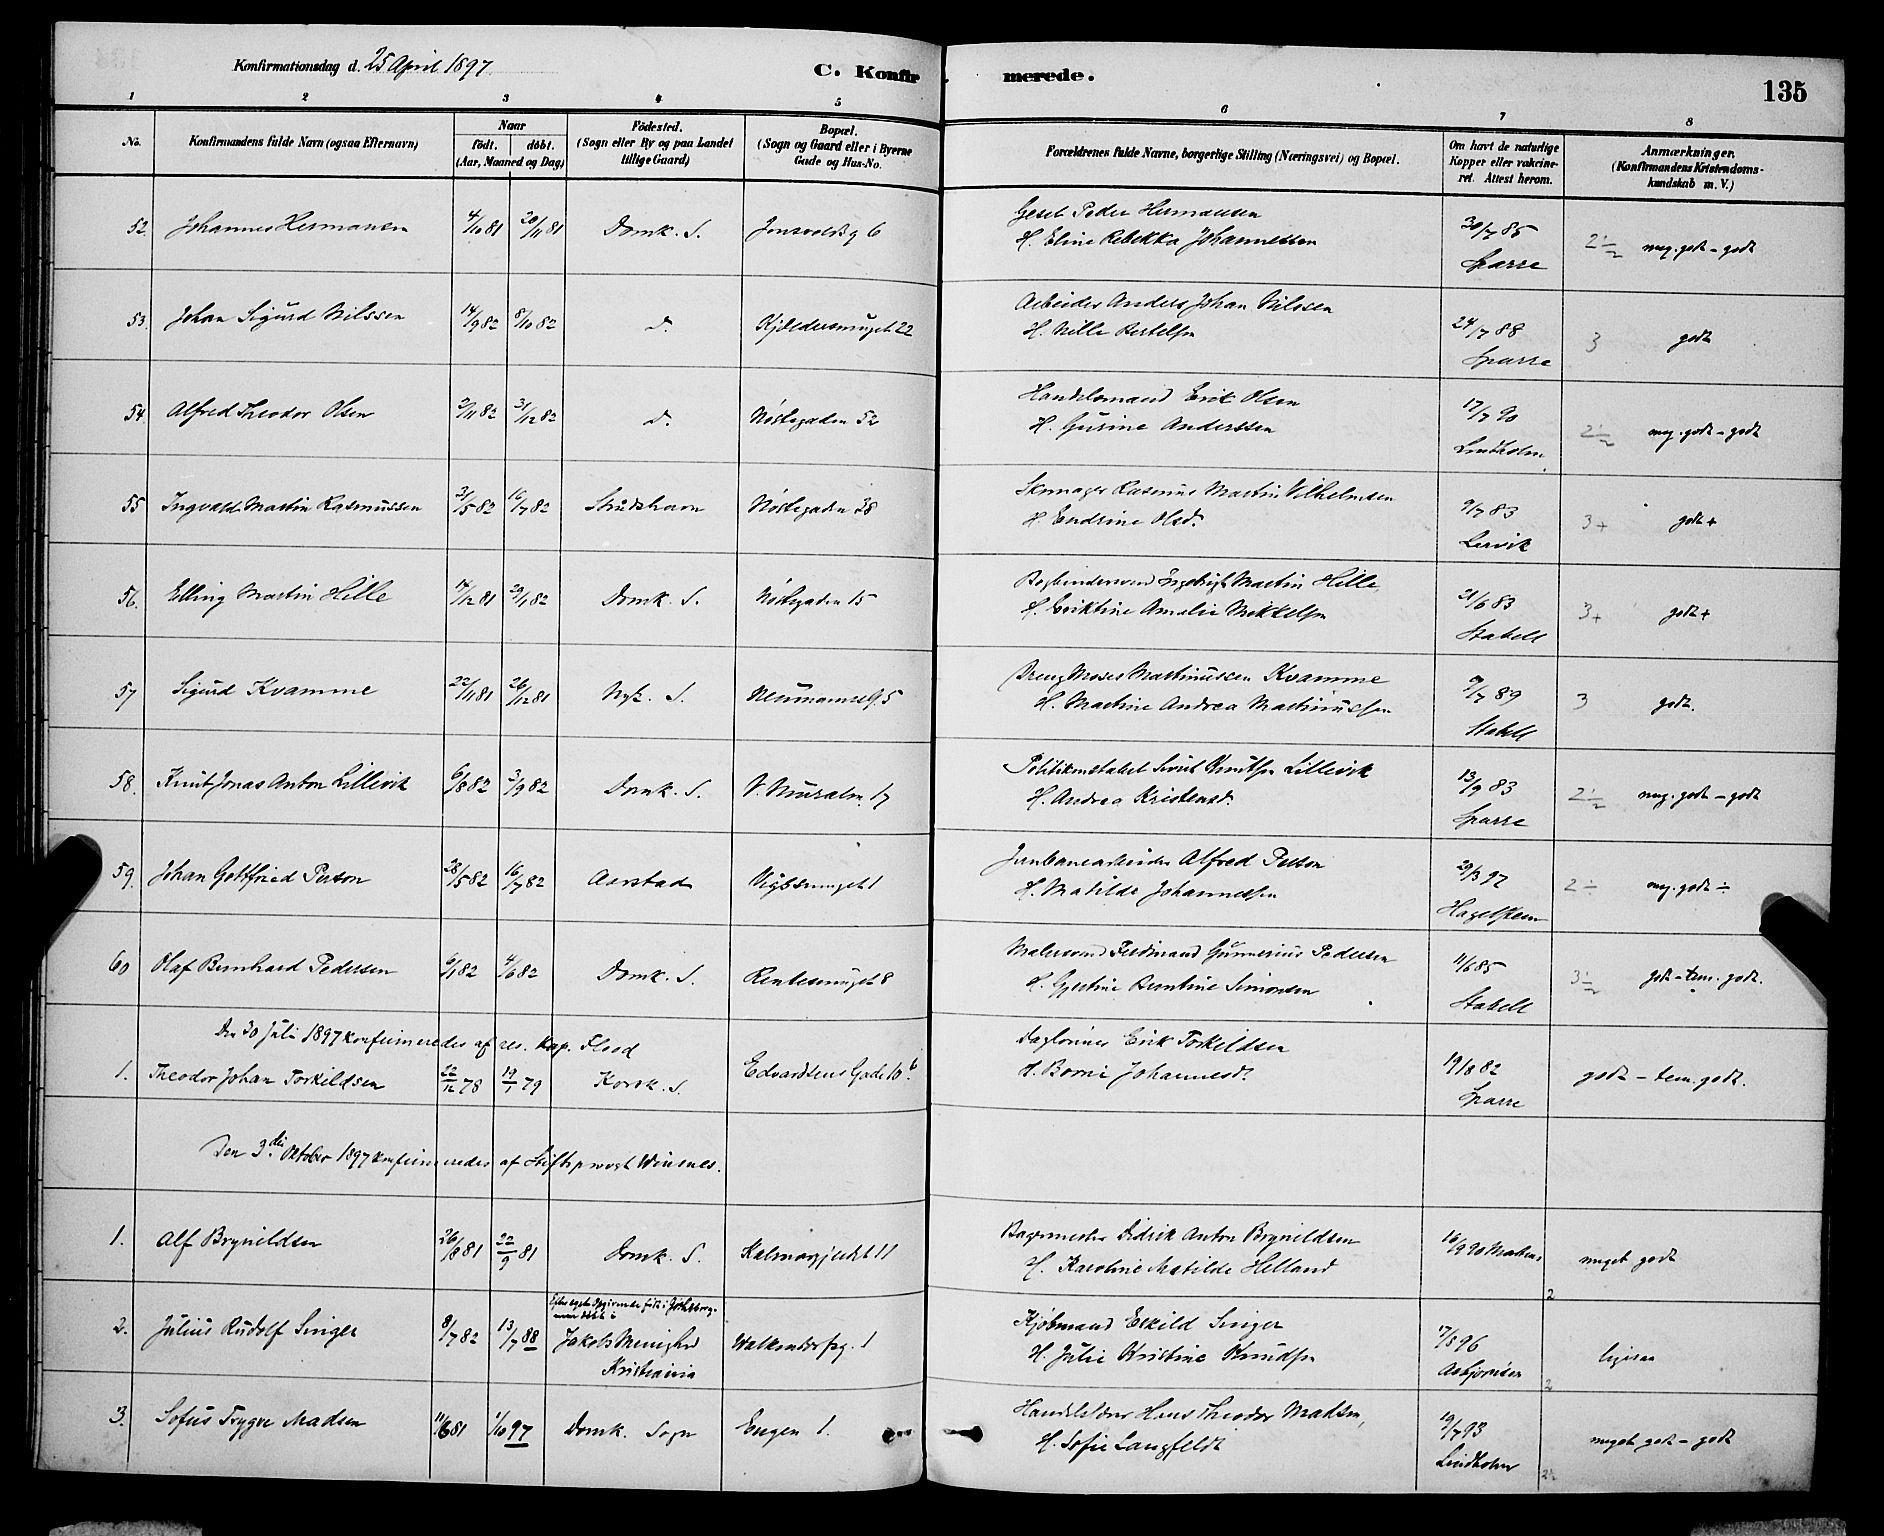 Konfirmationsdag d. 25 April 1897.
C. Konfirmerede.
135
1 2 3 4 5 6 7 8
No.
Konfirmandens fulde Navn (ogsaa Efternavn)
Naar
födt. döbt.
(Aar, Maaned og Dag)
Födested.
(Sogn eller By og paa Landet
tillige Gaard)
Bopæl.
(Sogn og Gaard eller i Byerne
Gade og Hus-No.
Forældrenes fulde Navne, borgerlige Stilling (Næringsvei) og Bopæl.
Om havt de naturlige
Kopper eller vakcine-
ret. Attest herom.
Anmærkninger.
(Konfirmandens Kristendoms-
kundskab m. V.)
52. Johannes Hermansen 4/10 81 20/11 81 Domk. S. Jonsvoldsg 6
Gesel Peder Hermansen
H. Eline Rebekka Johannessen
30/7 85
Sparre
2½ meg. godt - godt
53. Johan Sigurd Nilssen 14/9 82 8/10 82 D. Kjeldersmuget 22
Arbeider Anders Johan Nilssen
H. Nille Bertelsen
24/7 88
Sparre
3 godt
54. Alfred Theodor Olsen 2/11 82 31/12 82 D. Nöstegaden 52
Handelsmand Erik Olsen
H. Gurine Anderssen
17/7 90
Lindholm.
2½ meg. godt - godt
55 Ingvald Martin Rasmussen 31/5 82 16/7 82 Strudshavn Nöstegaden 38
Skomager Rasmus Martin Vilhelmsen
H. Endrine Olsd.
9/7 83
Lervik
3+ godt+
56. Elling Martin Hille 17/12 81 29/1 82 Domk. S. Nöstegaden 15
Bogbindersvend Ingebrigt Martin Hille,
H. Eriktine Amalie Mikkelsen
21/6 83
Stabell
3+ godt+
57 Sigurd Kvamme 22/11 81 26/12 81 Nyk. S. Neumannsg. 5
Dreng Moses Martinussen Kvamme
H. Martine Andrea Martinussen
9/7 89
Stabell
3 godt.
58. Knut Jonas Anton Lillevik 6/8 82 3/9 82 Domk. S. V. Muralm. 17
Politikonstabel Sivert Knutsen Lillevik
H. Andrea Kristensd.
13/9 83
Sparre
2½ meg. godt - godt
59. Johan Gottfried Person 28/5 82 16/7 82 Aarstad 1
Jernbanearbeider Alfred Person
H. Matilde Johannessen
29/3 97
2÷ meg. godt ÷
60 Olaf Bernhard Pedersen 6/1 82 4/6 82 Domk. S. Rentesmuget 8
Malersvend Ferdinand Gunnerius Pedersen
H. Gjertine Berntine Simonsen
11/6 85
Stabell
3½ godt - tem. godt.
Den 30 Juli 1897 konfirmeredes af res. Kap. Flood
1. Theodor Johan Torkildsen 22/12 78 19/1 79 Korsk. S. Edvardsens Gade 10 b.
Daglönner Erik Torkildsen
H. Borni Johannesd.
19/8 82
Sparre
godt - tem. godt.
Den 3die Oktober 1897 konfirmeredes af Stiftsprovst Winsnes.
1. Alf Brynildsen 26/8 81 22/9 81 Domk. S. Kalmargjerdet 11
Bagermester Didrik Anton Brynildsen
H. Karoline Matilde Helland
16/9 90 Madsen
2 meget godt
2. Julius Rudolf Singer 8/7 82 13/7 88
Efter eget Opgivende födt i Göteborg
men döbt i
Jakobs Menighed
Kristiania
Walkendorfsg. 1
Kjöbmand Eskild Singer
H. Julie Kristine Knudsen
17/8 96
Asbjornsen
2 ligesaa
3. Sofus Trygve Madsen 11/6 81 1/10 97 Domk. Sogn Engen 1.
Handelsborger Hans Theodor Madsen,
H. Sofie Langfeldt
19/7 93
Lindholm
2½ meget godt - godt